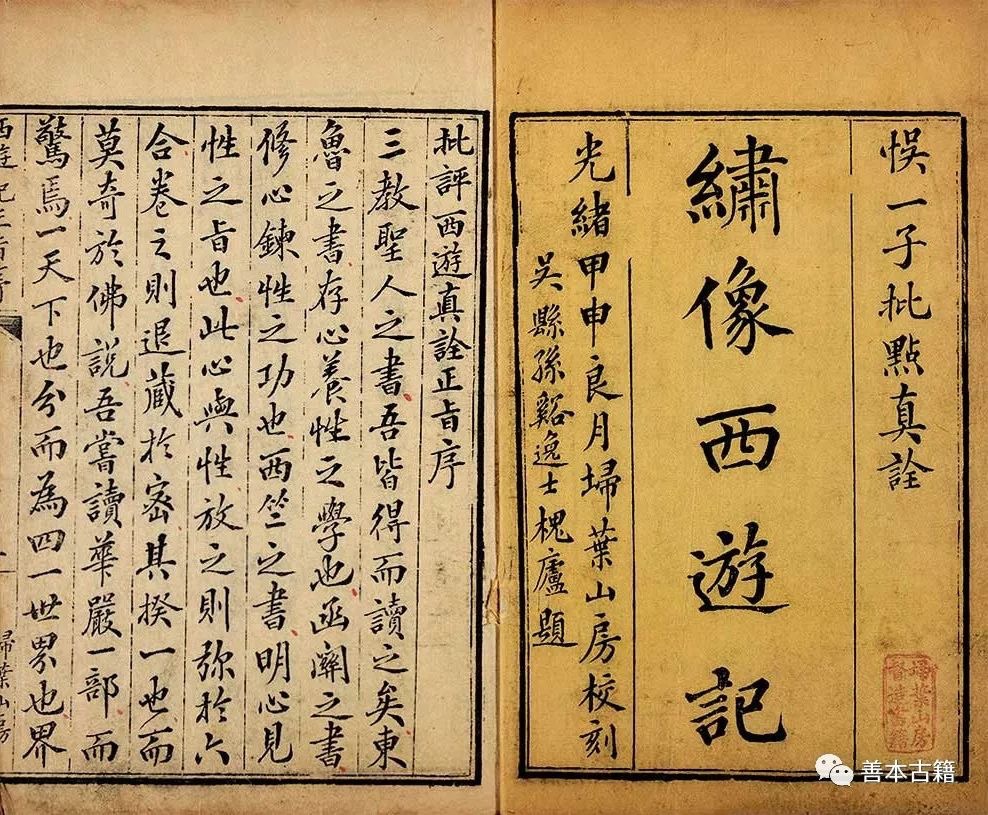 悞一子批點真詮
繡像西遊記
光緒甲申良月埽葉山房校刻
吳縣孫谿逸士槐廬題
埽葉山房
督造書籍
批評西遊真詮正旨序
三教聖人之書吾皆得而讀之矣東
魯之書存心養性之學也函關之書
修心鍊性之功也西竺之書明心見
性之旨也此心與性放之則弥於六
合卷之則退藏於密其揆一也而
莫奇於佛說吾嘗讀華嚴一部而
驚焉一天下也分而為四一世界也界
西遊記正旨序
一
埽葉山房
善本古籍